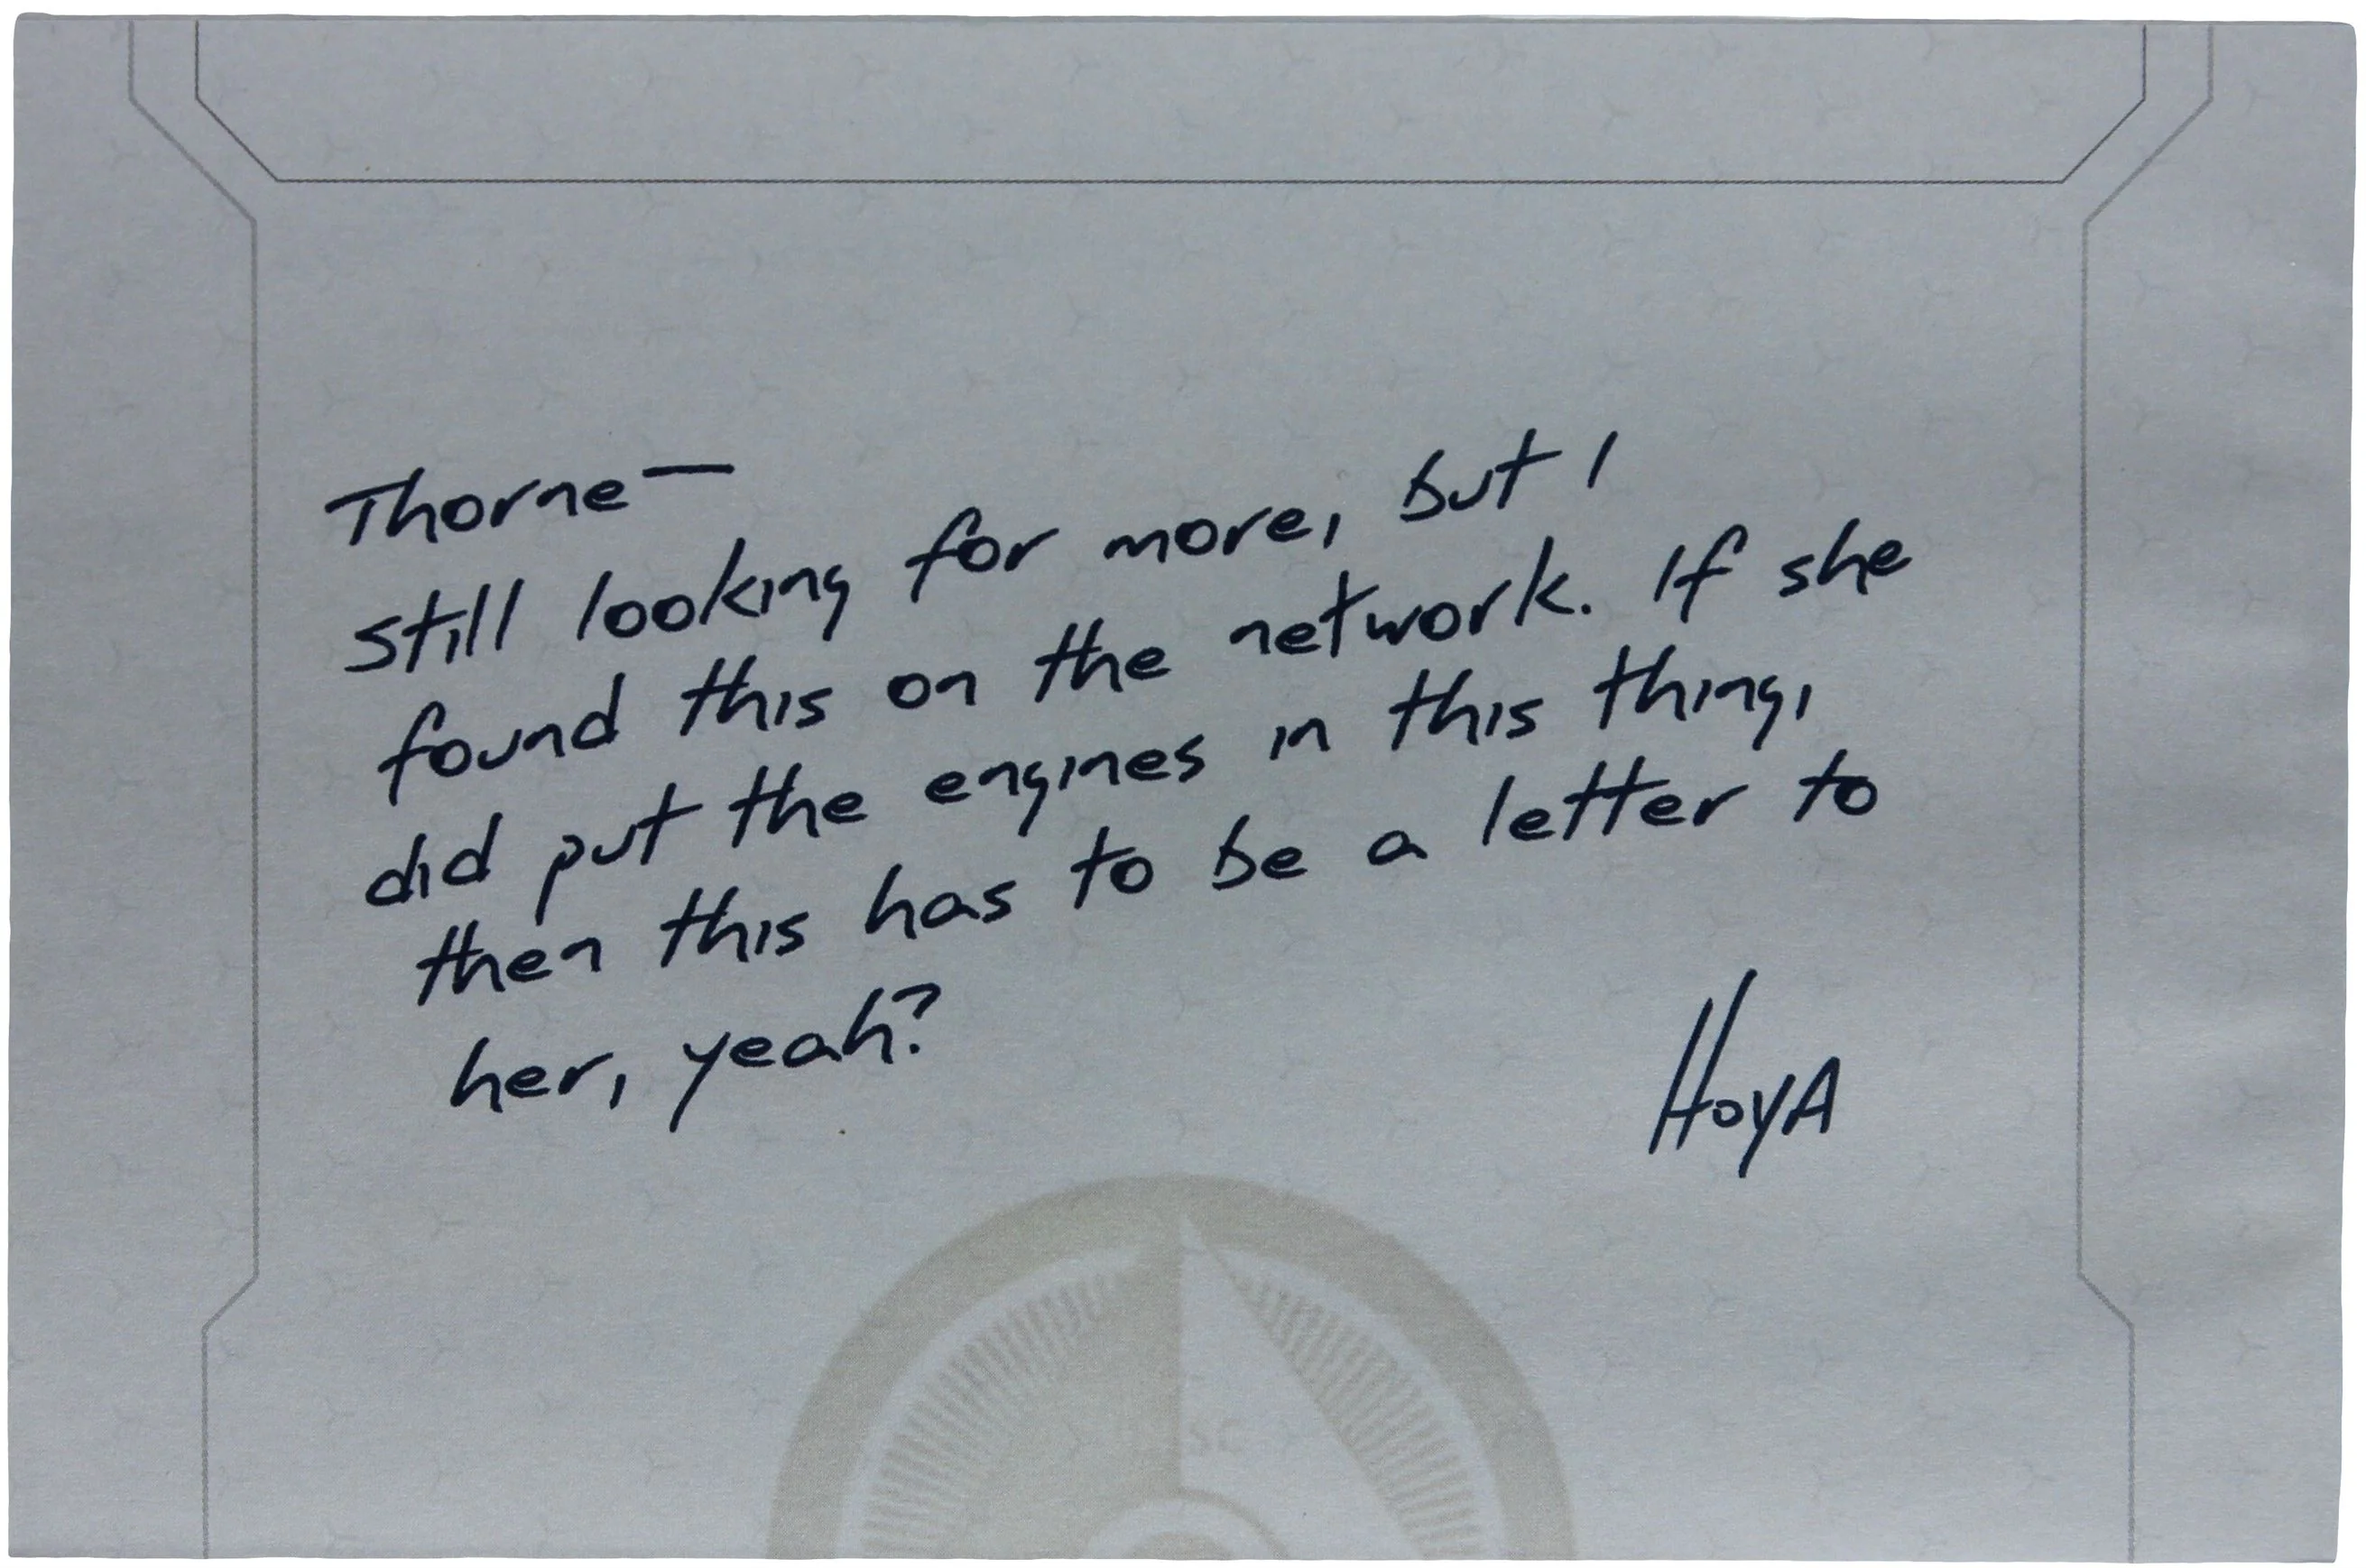 Thorne—
still looking for more, but I
found this on the network. If she
did put the engines in this thing,
then this has to be a letter to
her, yeah?
HoyA